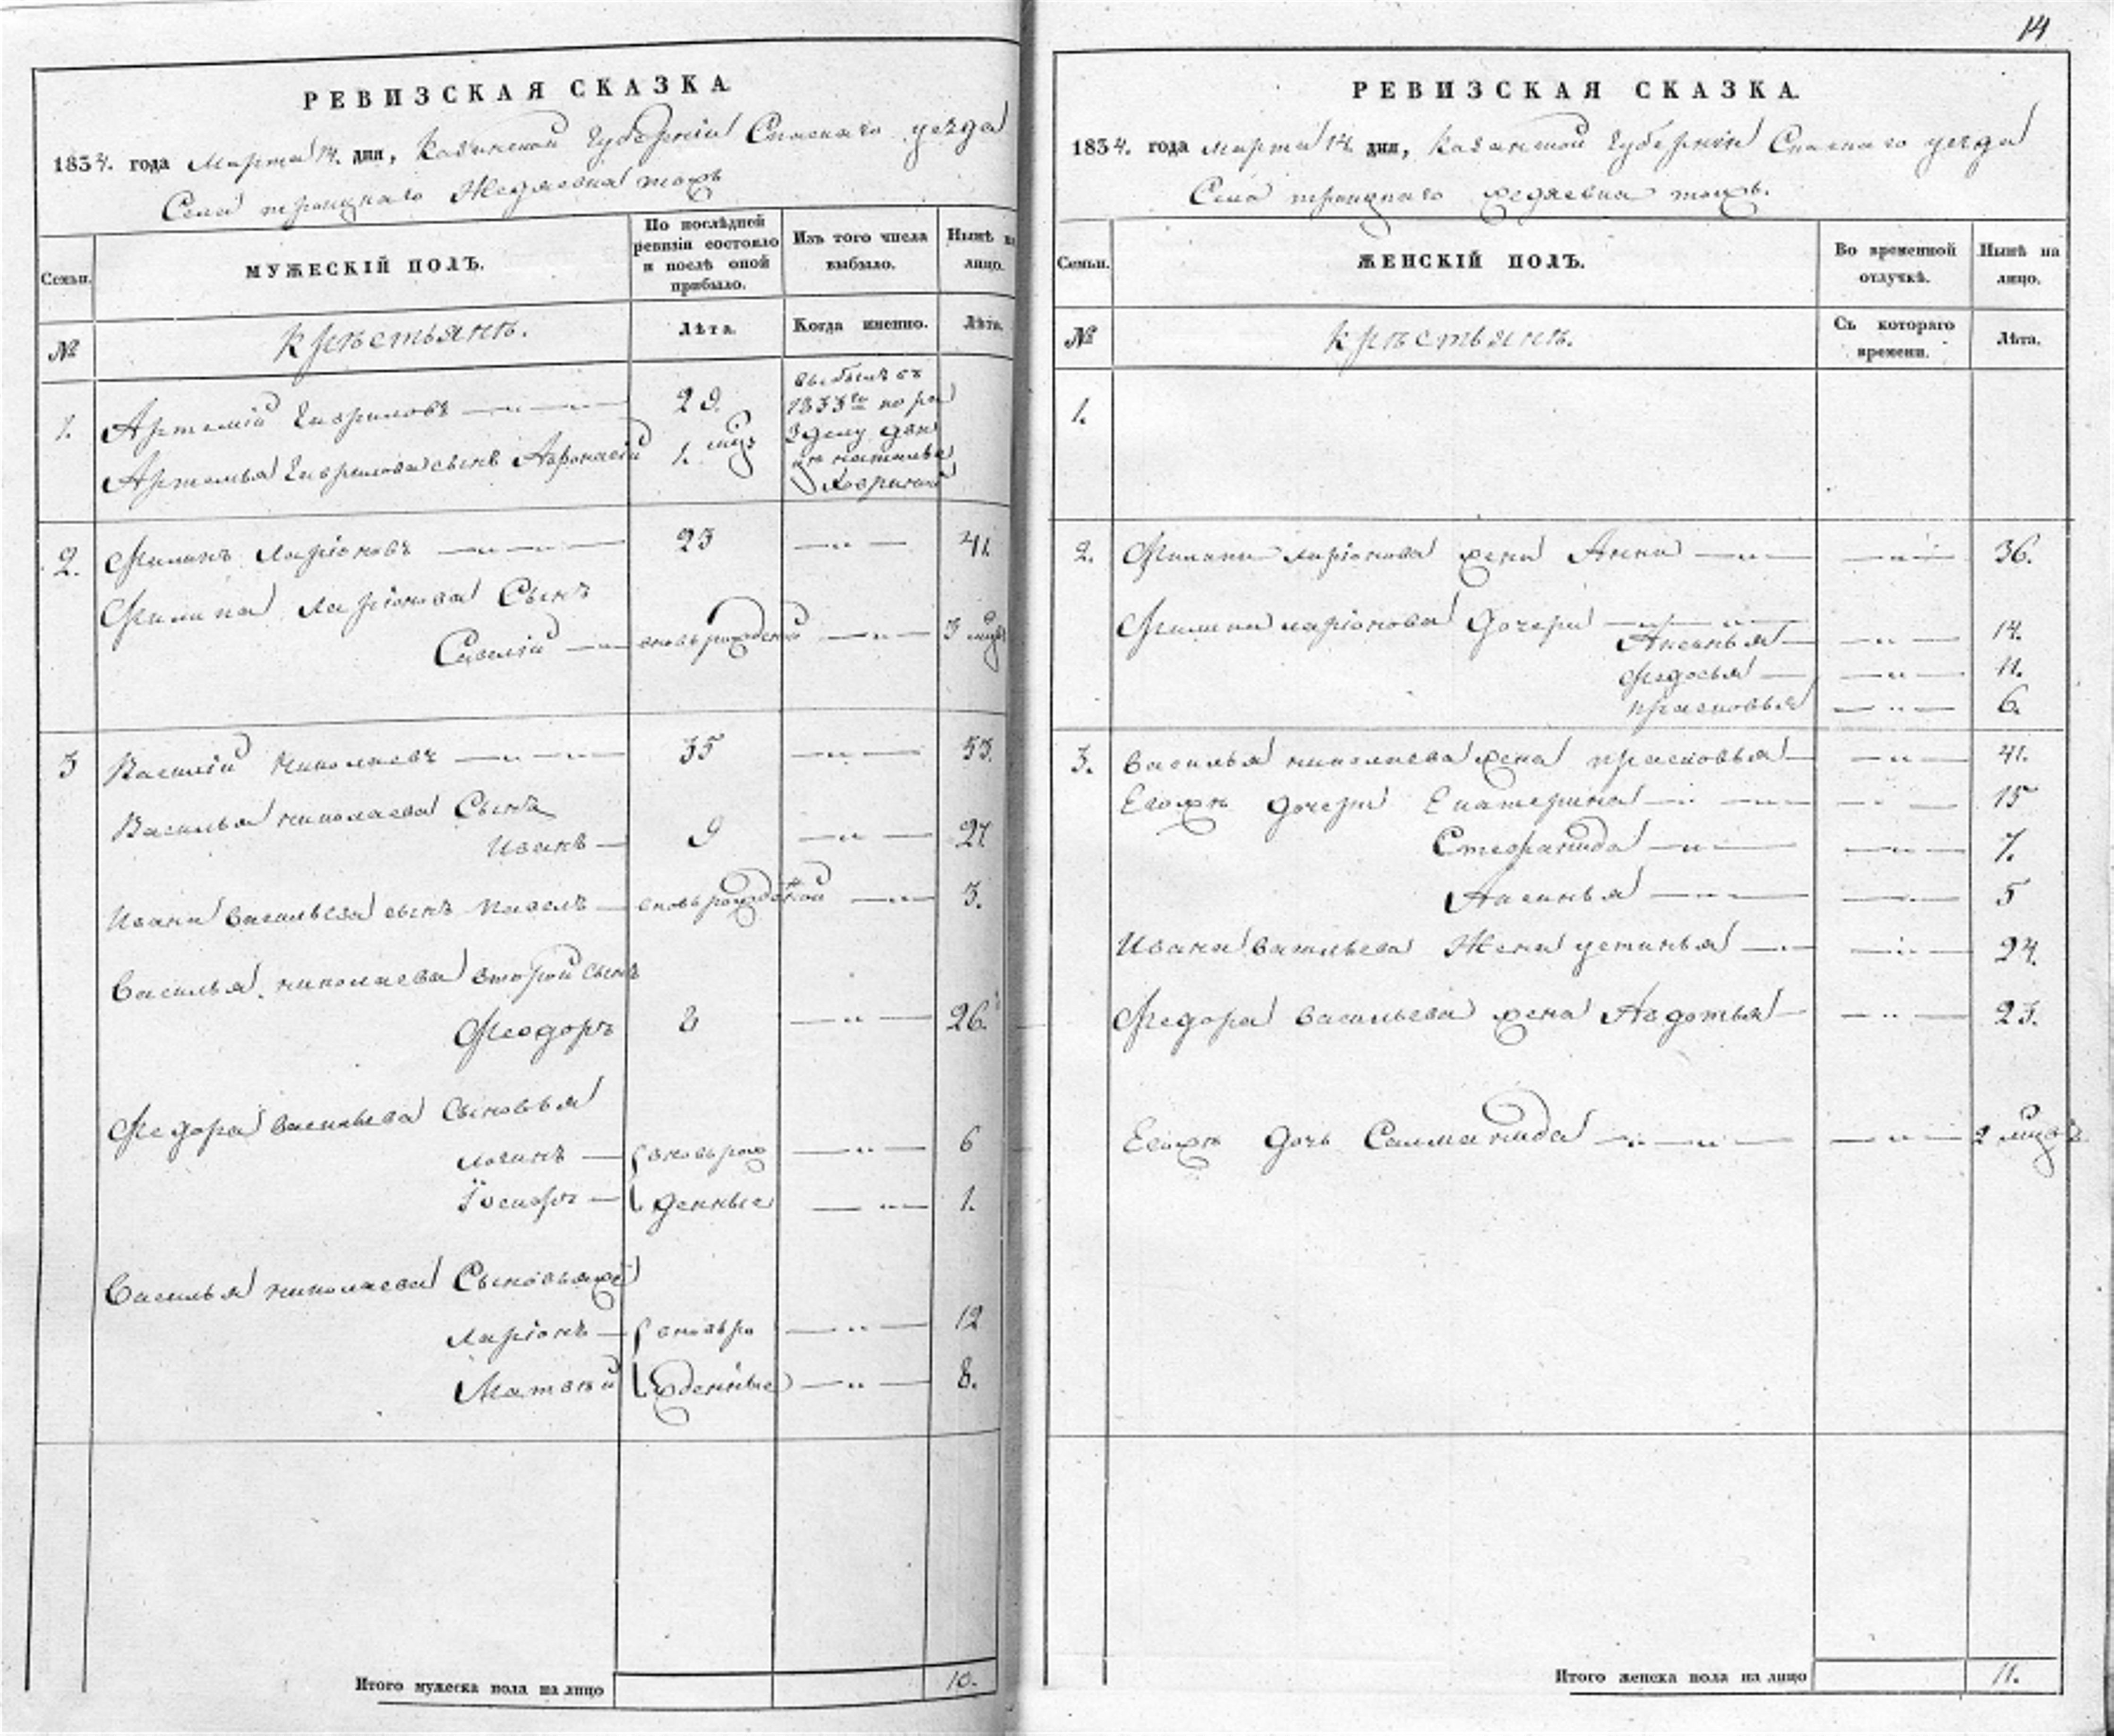 14
РЕВИЗСКАЯ СКАЗКА
1834. года Марта 14. дня, Казанской Губерніи Спаскаго уезда
Села троицкаго Жедяевка тожъ
Семьи.
МУЖЕСКІЙ ПОЛЪ.
По послѣдней ревизіи состояло и послѣ оной прибыло.
Изъ того числа выбыло.
Нынѣ на лицо.
№
крѣстьянъ.
Лѣта.
Когда именно.
Лѣта.
1. Артемій Гавриловъ 29.
Артемья Гаврилова сынъ Афонасій 1. мцъ
выбылъ въ
1833 го по ра
Зделу
2. Филипъ Ларіоновъ 23 41.
Филипа Ларіонова Сынъ
Савелій вновьрожденой 3 мцъ
3 Василій Николаевъ 35 53.
Василья николаева Сынъ
Иванъ 9 27
Ивана васильева сынъ Павелъ вновьрожденой 3.
Василья николаева второй сынъ
Феодоръ 8 26.
Федора васильева Сыновья
Логинъ вновьрож 6
денные 1.
Василья николаева Сыновьяже
Ларіонъ вновьро 12
Матвей жденные 8.
Итого мужеска пола на лицо 10.
РЕВИЗСКАЯ СКАЗКА.
1834. года марта 14 дня, Казанской Губерніи Спаскаго уезда
Села троицкаго жедяевка тожъ.
Семьи.
ЖЕНСКІЙ ПОЛЪ.
Во временной отлучкѣ.
Нынѣ на лицо.
№
крѣстьянъ.
Съ котораго времени.
Лѣта.
1.
2. Филипа ларіонова жена Анна 36.
Филипа ларіонова дочери
Аксинья 14.
Федосья 11.
прасковья 6.
3. Василья николаева жена прасковья 41.
Егожъ дочери Екатерина 15
Стефанида 7.
Аксинья 5
Ивана васильева Жена устинья 24.
Федора васильева жена Авдотья 23.
Егожъ дочь Саломанида 2 мцов
Итого женска пола на лицо 11.